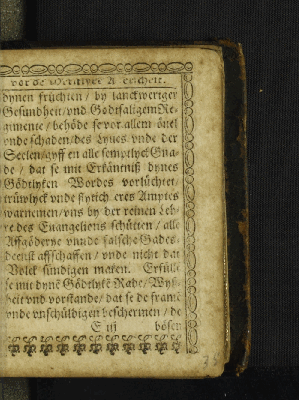 vor de Werltlyke A ericheit.
dynen früchten / by lanckweriger
Gesundheit / vnd Godtsaligem Re-
gimente / behöde se vor allem övel
vnde schaden / des Lyues vnde der
Seelen / gyff en alle semptlyck Gna-
de / dat se mit Erkäntniß dynes
Gödtlyken Wordes vorlüchtet /
trüwlyck vnde flytich eres Amptes
warnemen / vns by der reinen Leh-
re des Euangelions schütten / alle
Affgöderye vnnde falsche Gades-
deenst affschaffen / vnde nicht dat
Volck sündigen maken. Erfülle
se mit dyne Gödtlyke Rade / Wyß-
heit vnd vorstande / dat se de frame
vnde vnschüldigen beschermen / de
E iij bösen